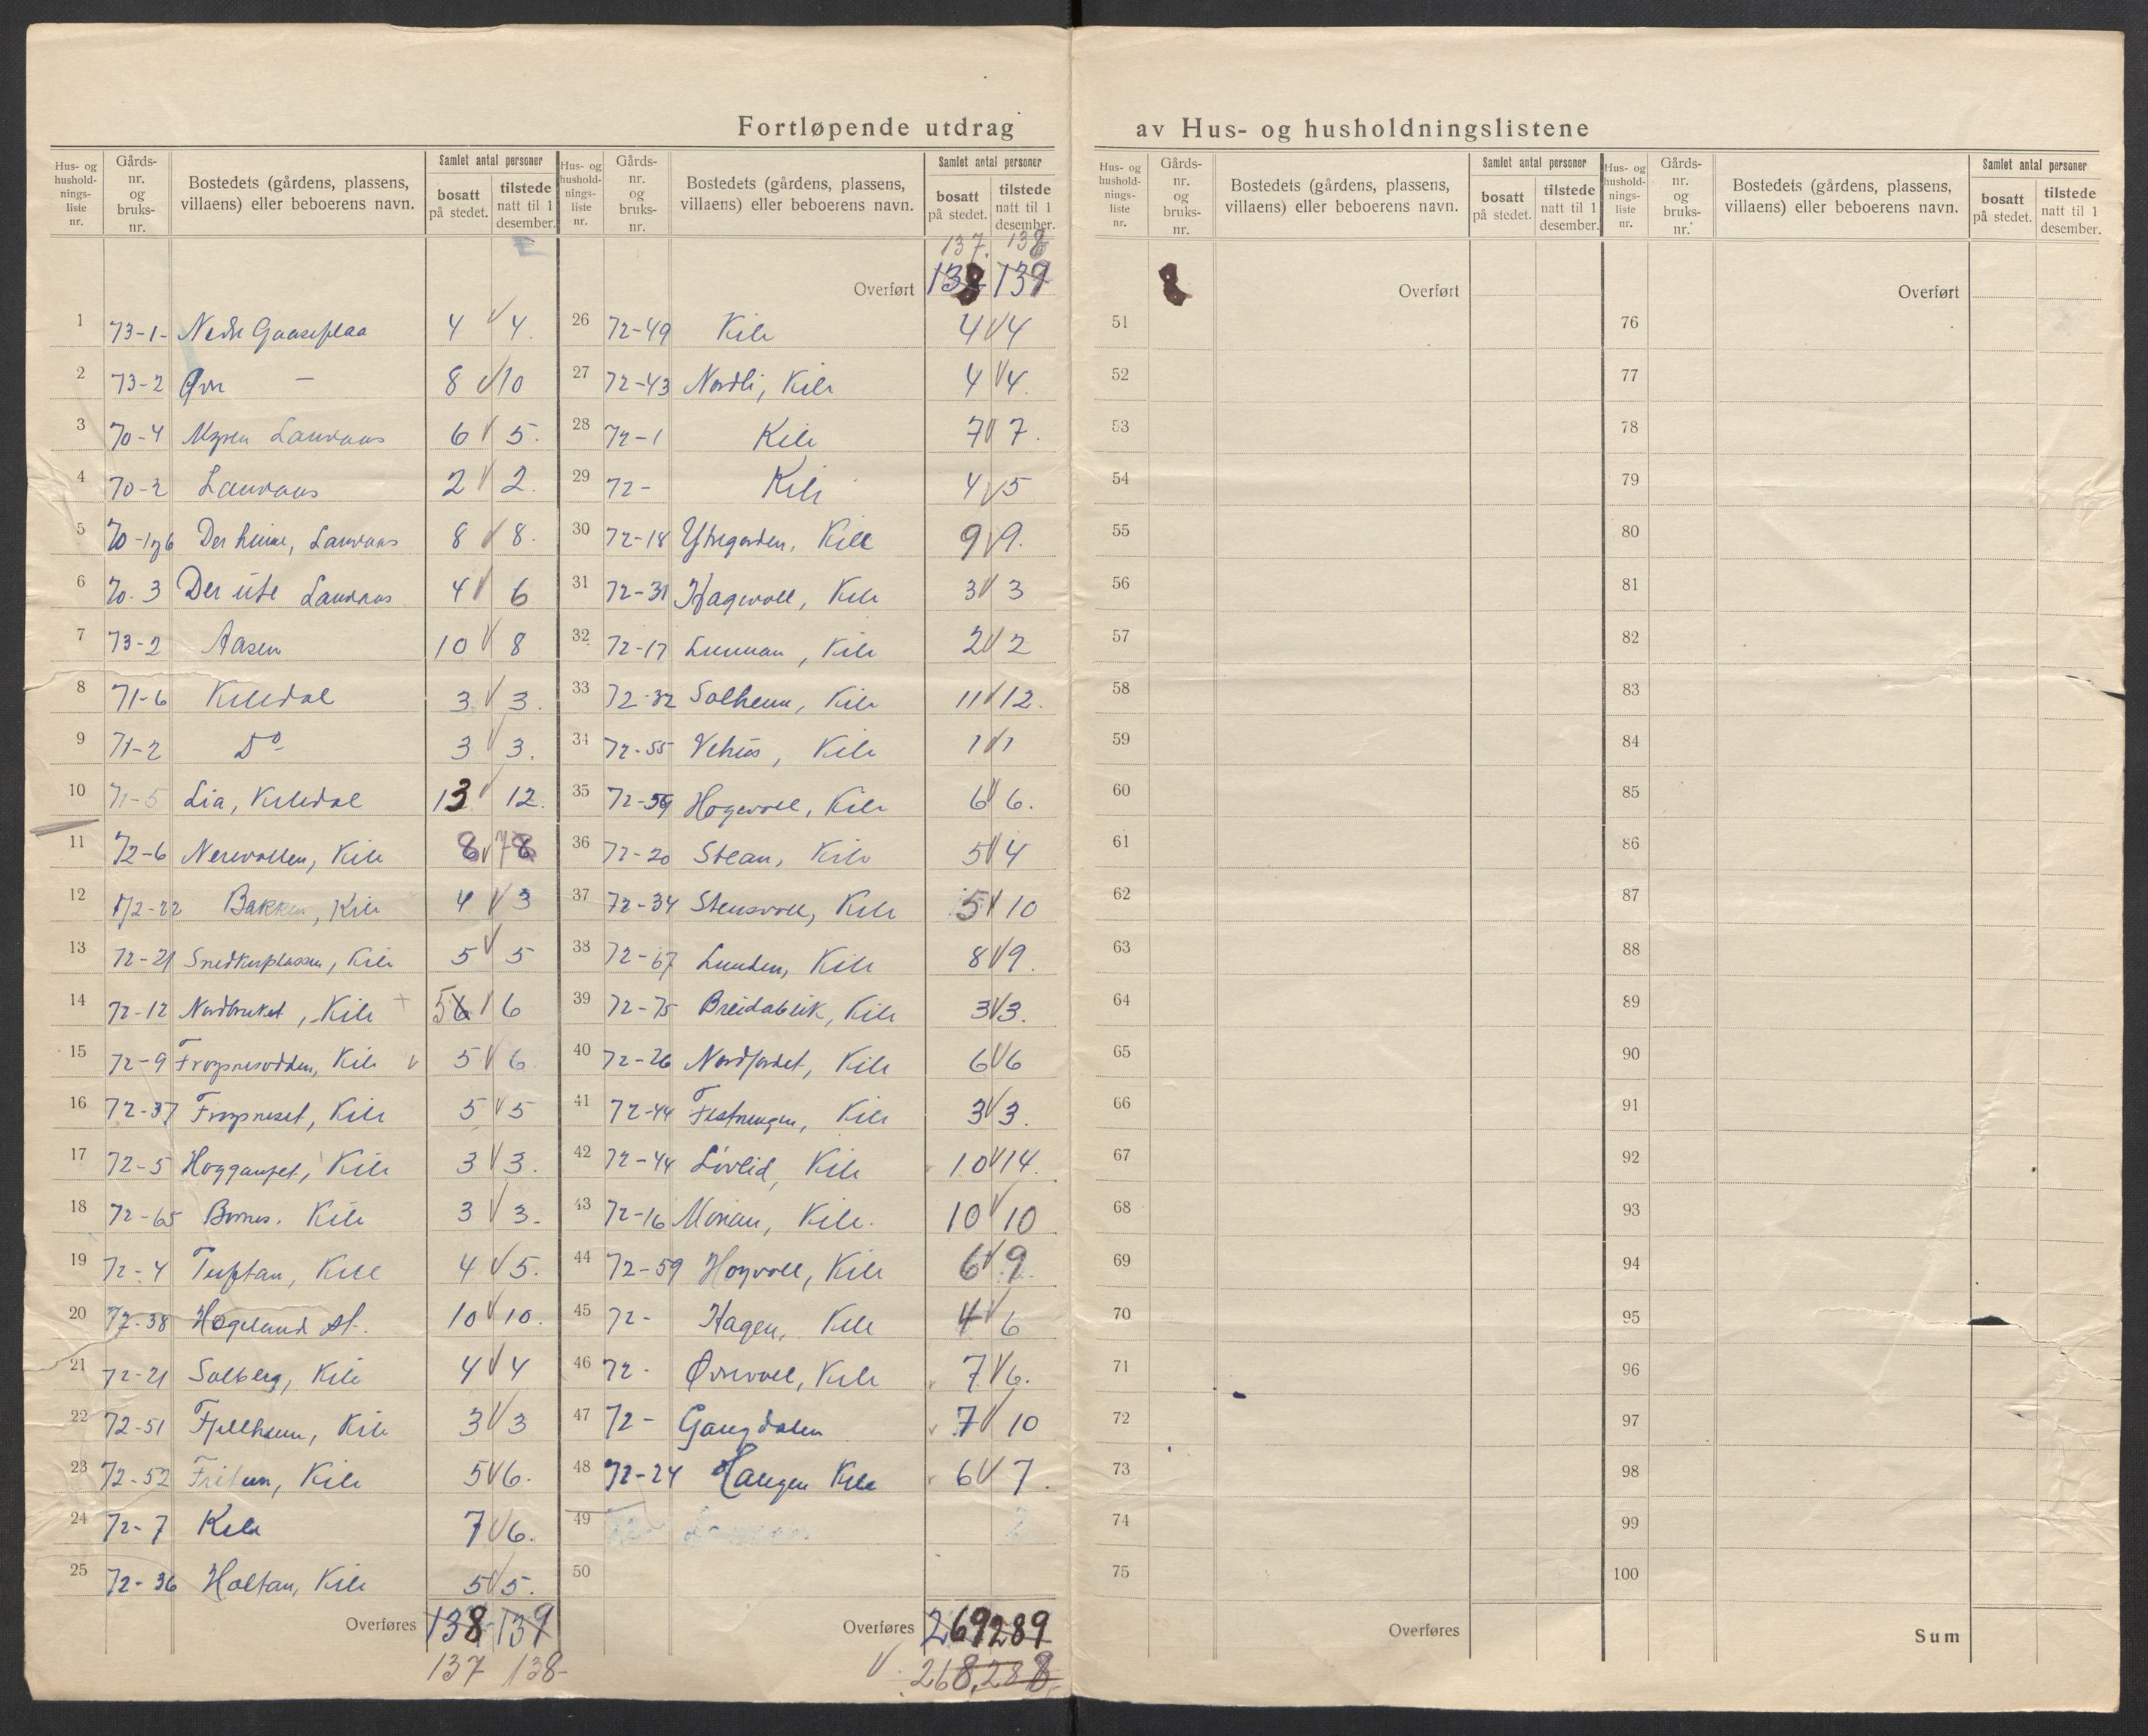 Fortløpende utdrag av Hus- og husholdningslistene
Hus- og husholdnings-liste nr. Gårds-nr. og bruks-nr. Bostedets (gårdens, plassens, villaens) eller beboerens navn. Samlet antal personer bosatt på stedet. tilstede natt til 1 desember.
1 73-1- Nedr Gaaseflaa 4 4.
2 73-2 Øvr — 8 10
3 70-4 Myren Lauvaas 6 5.
4 70-2 Lauvaas 2 2.
5 70-1og6 Der heime, Lauvaas 8 8.
6 70.3 Der ute Lauvaas 4 6
7 73-2 Aasen 10 8
8 71-6 Kiledal 3 3.
9 71-2 Do 3 3.
10 71-5 Lia, Kiledal 13 12.
11 72-6 Nerevollen, Kile 8 78
12 72-22 Bakken, Kile 4 3
13 72-21 Snedkerplassen, Kile 5 5
14 72-12 Nordbruket, Kile 56 6
15 72-9 Frøysnesodden, Kile 5 6
16 72-37 Frøysneset, Kile 5 5
17 72-5 Kile 3 3.
18 72-65 Kile 3 3.
19 72-4 Tuftan, Kile 4 5.
20 72-38 Hægeland st. 10 10.
21 72-21 Solberg, Kile 4 4
22 72-51 Fjellheim, Kile 3 3
23 72-52 Kile 5 6.
24 72-7 Kile 7 6.
25 72-36 Holtan, Kile 5 5.
Overføres 138 139
137 138-
Hus- og husholdnings-liste nr. Gårds-nr. og bruks-nr. Bostedets (gårdens, plassens, villaens) eller beboerens navn. Samlet antal personer bosatt på stedet. tilstede natt til 1 desember.
137. 138
Overført 138 139
26 72-49 Kile 4 4
27 72-43 Nordli, Kile 4 4.
28 72-1 Kile 7 7.
29 72- Kile 4 5
30 72-18 Ytregarden, Kile 9 9.
31 72-31 Hagevoll, Kile 3 3
32 72-17 Kile 2 2
33 72-32 Solheim, Kile 11 12.
34 72-55 Kile 1 1
35 72-59 Høgevoll, Kile 6 6.
36 72-20 Stean, Kile 5 4
37 72-34 Stensvoll, Kile 5 10
38 72-67 Lunden, Kile 8 9.
39 72-75 Breidablik, Kile 3 3.
40 72-26 Nordjordet, Kile 6 6
41 72-44 Kile 3 3.
42 72-44 Kile 10 14.
43 72-16 Monan, Kile. 10 10
44 72-59 Høyvoll, Kile 6 9.
45 72- Hagen, Kile 4 6
46 72- Øvrevoll, Kile 7 6.
47 72- Gangdalen 7 10
48 72-24 Haugen Kile 6 7.
49
50
Overføres 269 289
268, 288,
Hus- og husholdnings-liste nr. Gårds-nr. og bruks-nr. Bostedets (gårdens, plassens, villaens) eller beboerens navn. Samlet antal personer bosatt på stedet. tilstede natt til 1 desember.
Overført
51
52
53
54
55
56
57
58
59
60
61
62
63
64
65
66
67
68
69
70
71
72
73
74
75
Overføres
Hus- og husholdnings-liste nr. Gårds-nr. og bruks-nr. Bostedets (gårdens, plassens, villaens) eller beboerens navn. Samlet antal personer bosatt på stedet. tilstede natt til 1 desember.
Overført
76
77
78
79
80
81
82
83
84
85
86
87
88
89
90
91
92
93
94
95
96
97
98
99
100
Sum